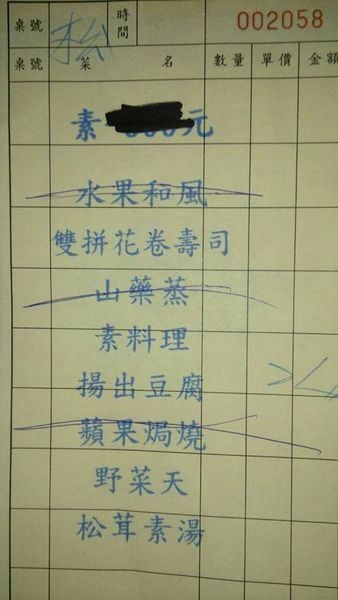 桌號 松 時間 002058
桌號 菜名 數量 單價 金額
素 元
水果和風
雙拼花卷壽司
山藥蒸
素料理
揚出豆腐
蘋果焗燒
野菜天
松茸素湯